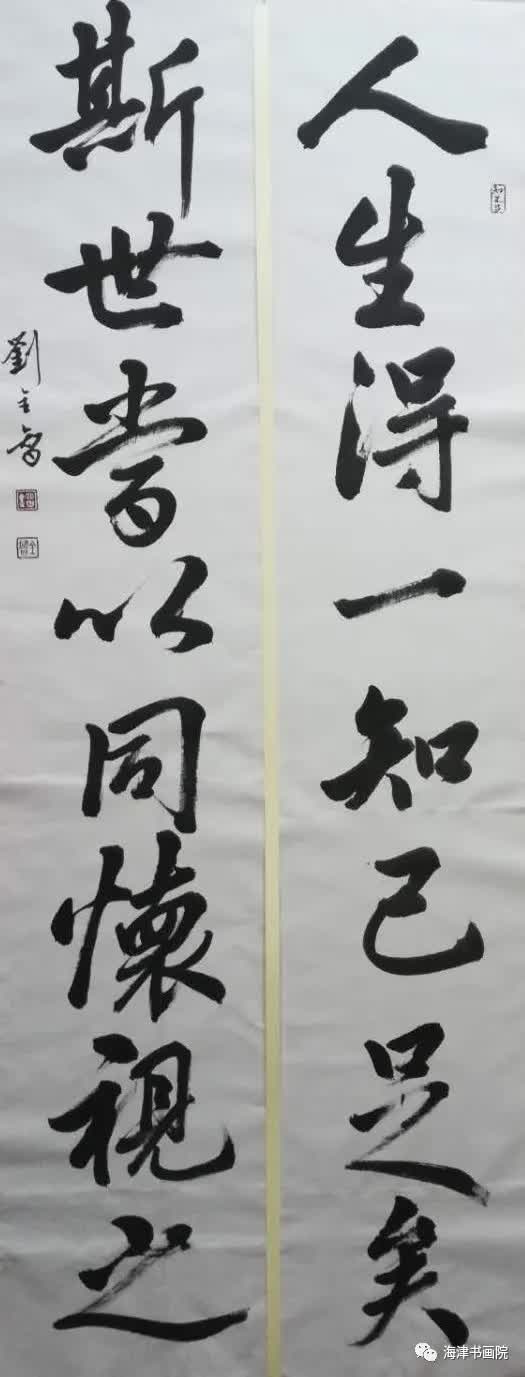 人生得一知己足矣
斯世當以同懷視之
劉全智
海津书画院